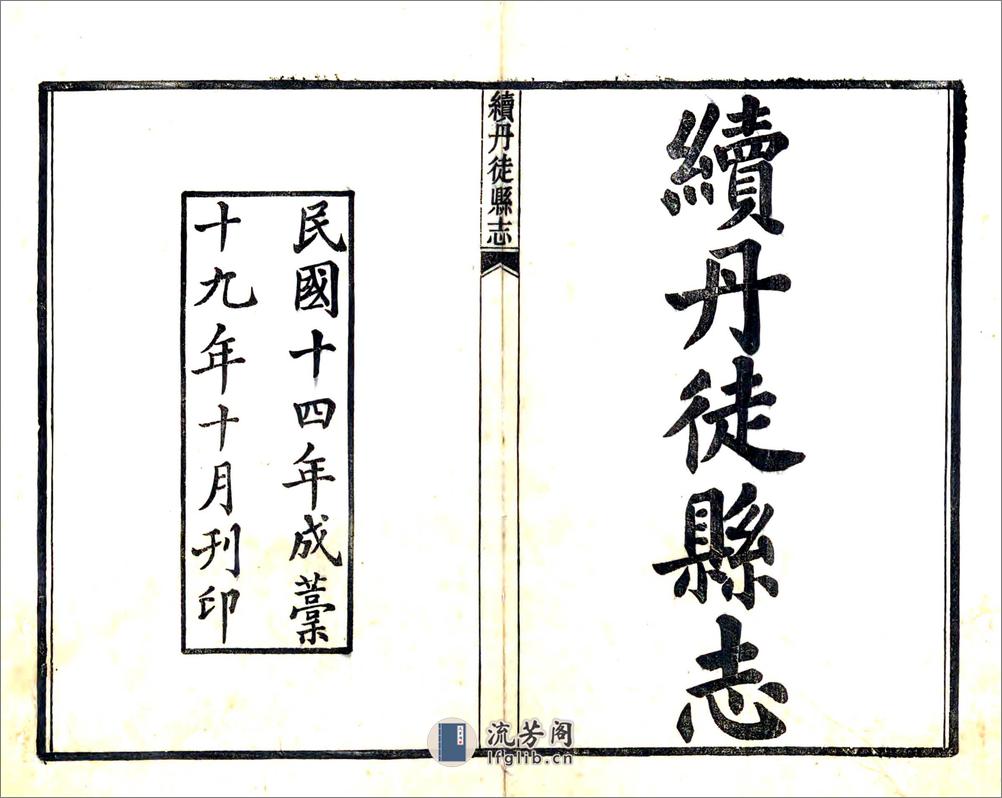 續丹徒縣志
續丹徒縣志
民國十四年成藁
十九年十月刊印
流芳阁
lfglib.cn